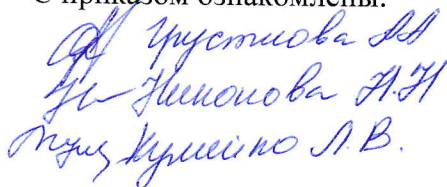 С приказом ознакомлены:
Грустлова АА
Никонова Н.Н
Кумейко Л.В.